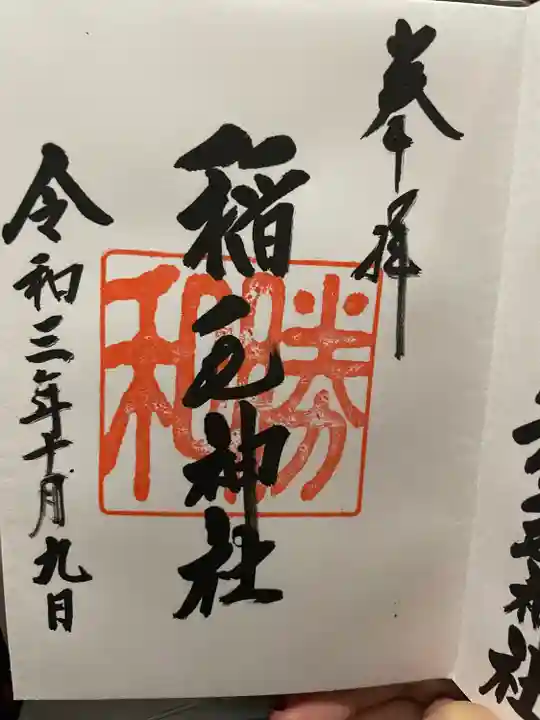 奉拝
稲毛神社
令和三年十月九日
勝和
神社